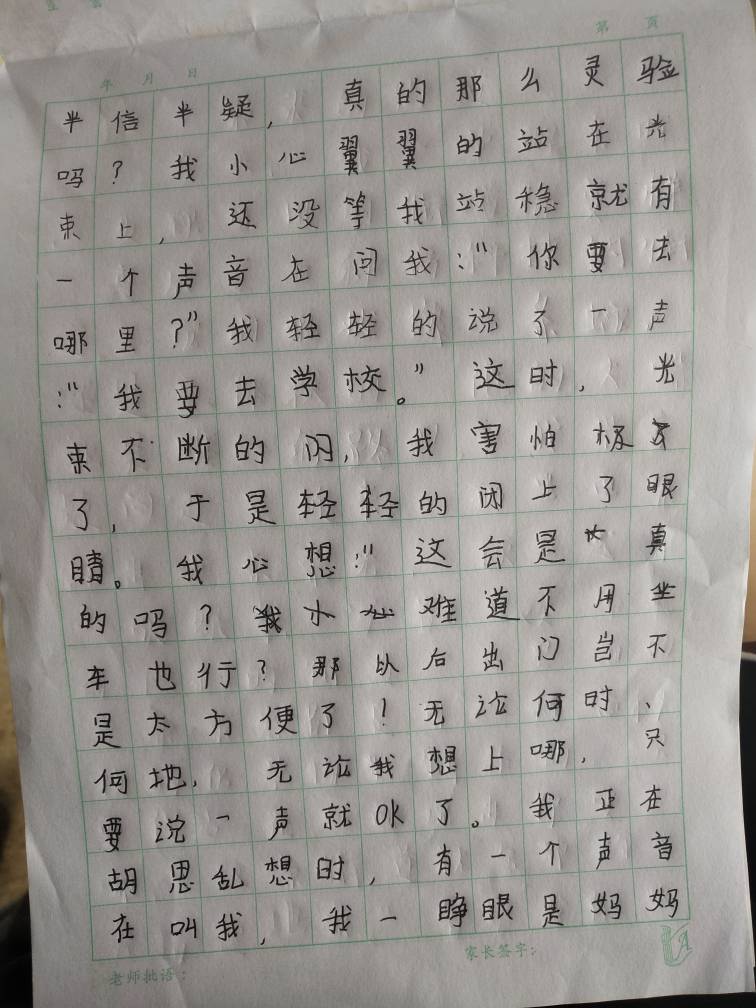 第 页
年 月 日
半信半疑，真的那么灵验
吗？我小心翼翼的站在光
束上，还没等我站稳就有
一个声音在问我：“你要去
哪里？”我轻轻的说了一声
：“我要去学校。”这时，光
束不断的闪，我害怕极
了，于是轻轻的闭上了眼
睛。我心想：“这会是真
的吗？难道不用坐
车也行？那以后出门岂不
是太方便了！无论何时、
何地，无论我想上哪，只
要说一声就OK了。我正在
胡思乱想时，有一个声音
在叫我，我一睁眼是妈妈
老师批语：
家长签字：